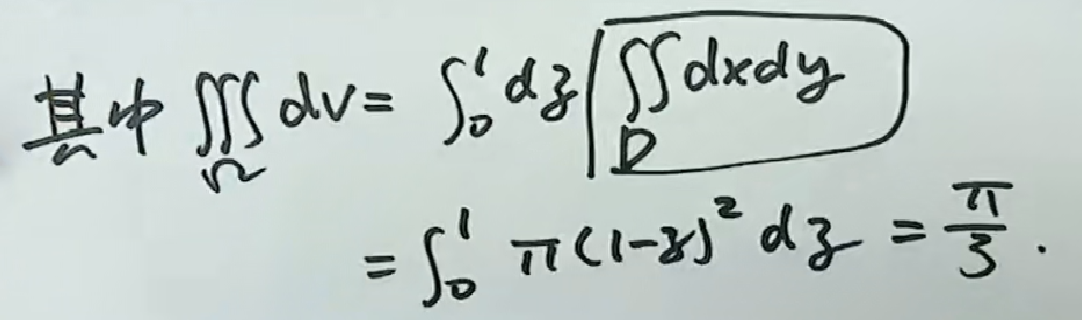 其中 ∭_Ω dv = ∫₀¹ dz ∬_D dxdy
= ∫₀¹ π(1-z)² dz = π/3 .